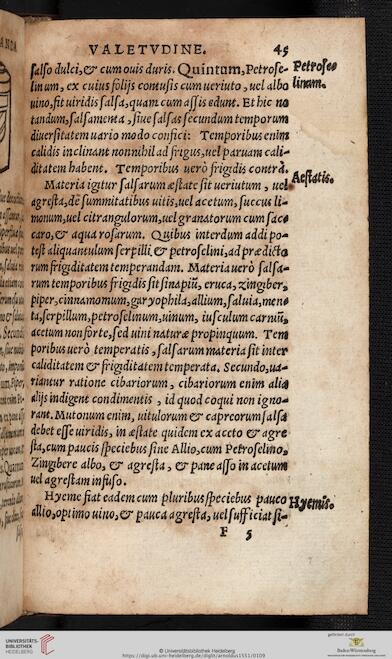 VALETVDINE. 45
salso dulci, & cum ouis duris. Quintum, Petrose- Petrose
linum, ex cuius folijs contusis cum ueriuto, uel albo linum.
uino, fit uiridis salsa, quam cum assis edunt. Et hic no
tandum, salsamenta, siue salsas secundum temporum
diuersitatem uario modo confici: Temporibus enim
calidis inclinant nonnihil ad frigus, uel paruam cali-
ditatem habent. Temporibus uerò frigidis contrà.
Materia igitur salsarum æstate sit ueriutum, uel Aestatis.
agresta, de summitatibus uitis, uel acetum, succus li-
monum, uel citrangulorum, uel granatorum cum sac
caro, & aqua rosarum. Quibus interdum addi po-
test aliquantulum serpilli & petroselini, ad prædictorum
frigiditatem temperandam. Materia uerò salsa-
rum temporibus frigidis sit sinapiū, eruca, zingiber,
piper, cinnamomum, garyophila, allium, saluia, men
ta, serpillum, petroselinum, uinum, iusculum carniū,
acetum non forte, sed uini naturæ propinquum. Tem
poribus uerò temperatis, salsarum materia sit inter
caliditatem & frigiditatem temperata. Secundo, ua-
riantur ratione cibariorum, cibariorum enim alia
alijs indigent condimentis, id quod coqui non igno-
rant. Mutonum enim, uitulorum & capreorum salsa
debet esse uiridis, in æstate quidem ex aceto & agre
sta, cum paucis speciebus sine Allio, cum Petroselino,
Zingibere albo, & agresta, & pane asso in acetum
uel agrestam infuso.
Hyeme fiat eadem cum pluribus speciebus pauco Hyemis.
allio, optimo uino, & pauca agresta, uel sufficiat si-
F 5
UNIVERSITÄTS-
BIBLIOTHEK
HEIDELBERG
© Universitätsbibliothek Heidelberg
https://digi.ub.uni-heidelberg.de/diglit/arnoldus1551/0109
gefördert durch
Baden-Württemberg